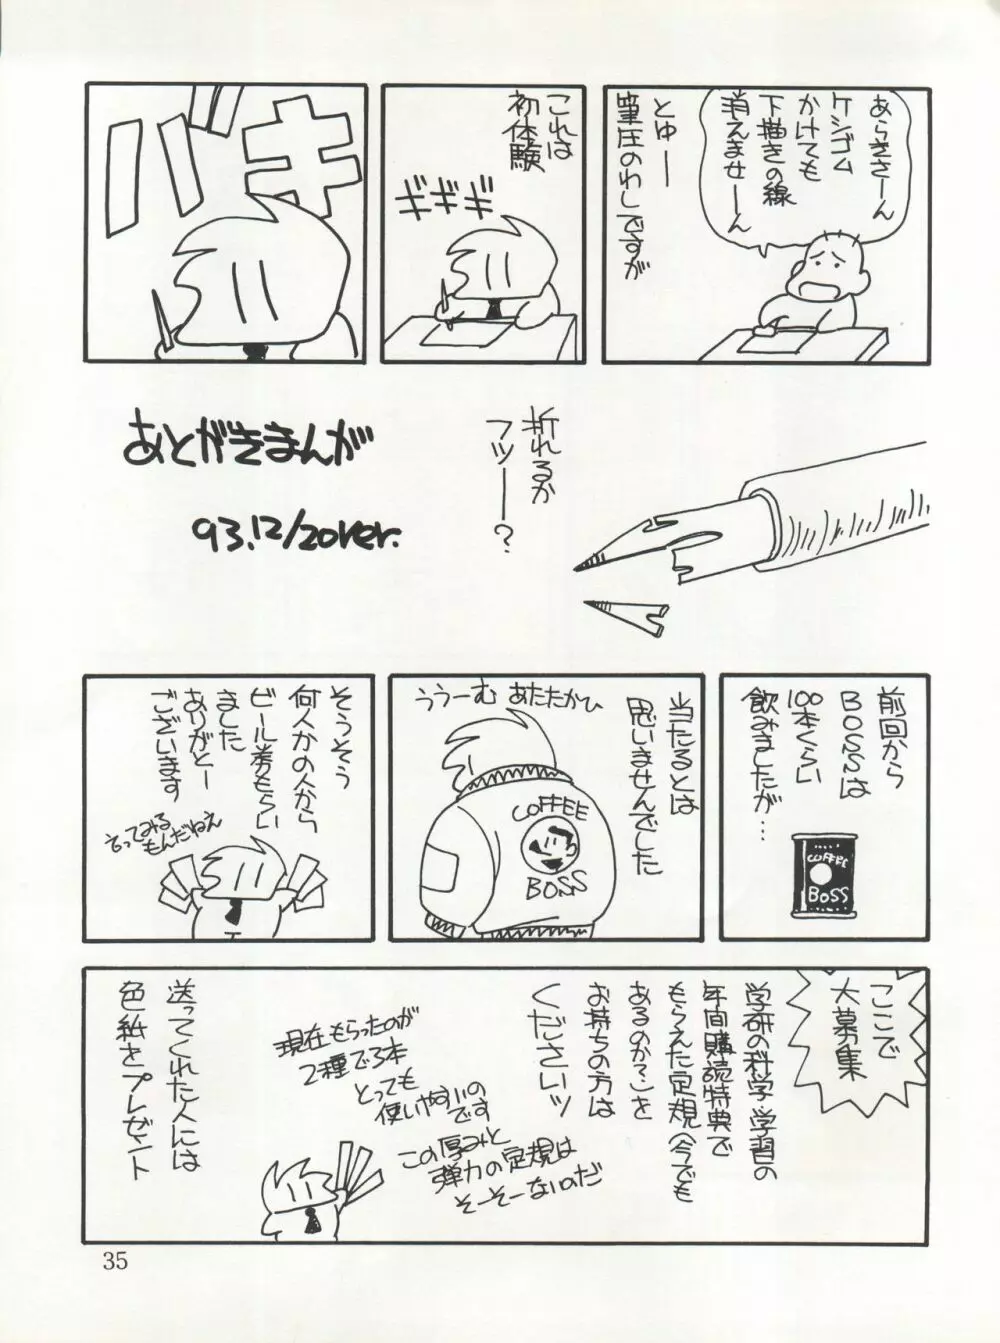 あらきさーん
ケシゴム
かけても
下描きの線
消えませーん
とゆー
筆圧のわしですが
これは
初体験
ギギギ
バキ
折れるか
フツー？
あとがきまんが
93.12/20ver.
前回から
BOSSは
100本くらい
飲みましたが…
COFFEE
BOSS
当たるとは
思いませんでした
ううーむ あたたかひ
COFFEE
BOSS
そうそう
何人かの人から
ビール券もらい
ました
ありがとー
ございます
言ってみる
もんだねえ
ここで
大募集
学研の科学 学習の
年間購読特典で
もらえた定規(今でも
あるのか?)を
お持ちの方は
くださいッ
現在もらったのが
2種で3本
とっても
使いやすいの
です
この厚みと
弾力の定規は
そーそーないのだ
送ってくれた人には
色紙をプレゼント
35